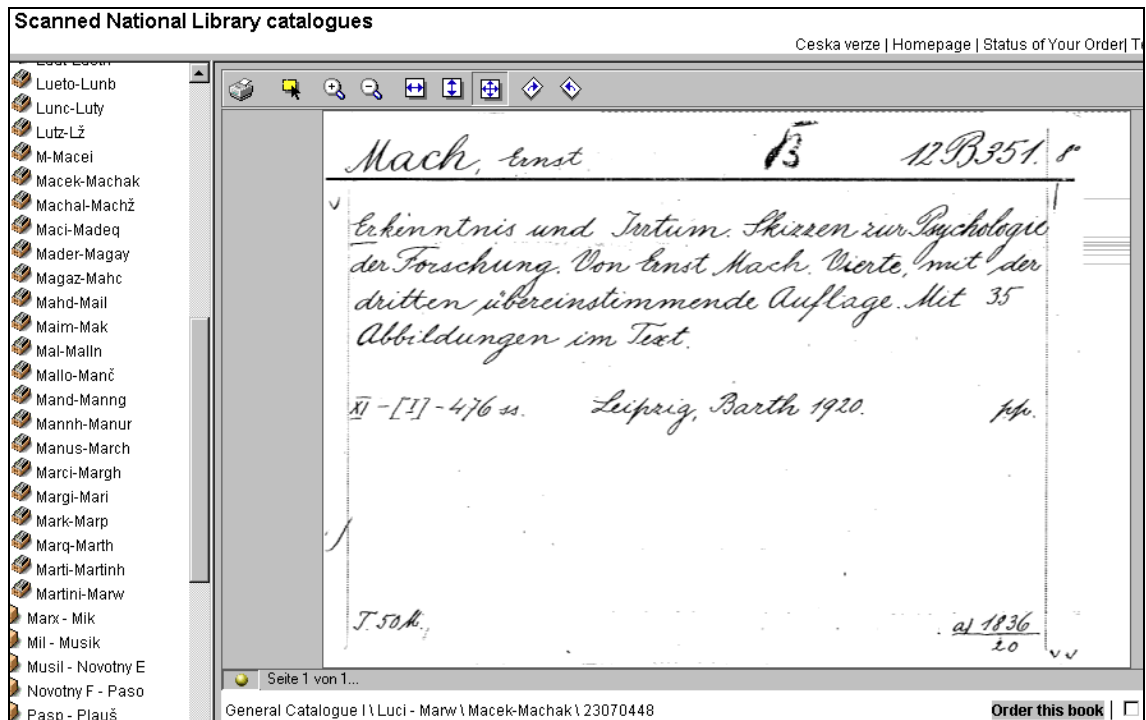 Scanned National Library catalogues
Ceska verze | Homepage | Status of Your Order|
Lueto-Lunb
Lunc-Luty
Lutz-Lž
M-Macei
Macek-Machak
Machal-Machž
Maci-Madeq
Mader-Magay
Magaz-Mahc
Mahd-Mail
Maim-Mak
Mal-Malln
Mallo-Manč
Mand-Manng
Mannh-Manur
Manus-March
Marci-Margh
Margi-Mari
Mark-Marp
Marq-Marth
Marti-Martinh
Martini-Marw
Marx - Mik
Mil - Musik
Musil - Novotny E
Novotny F - Paso
Pasp - Plauš
Mach, Ernst B 12B351. 8°
Erkenntnis und Irrtum. Skizzen zur Psychologie
der Forschung. Von Ernst Mach. Vierte, mit der
dritten übereinstimmende Auflage. Mit 35
Abbildungen im Text.
XI - [I] - 476 ss. Leipzig, Barth 1920. pp.
T. 50 M. a) 1836
20
Seite 1 von 1...
General Catalogue I \ Luci - Marw \ Macek-Machak \ 23070448 Order this book |